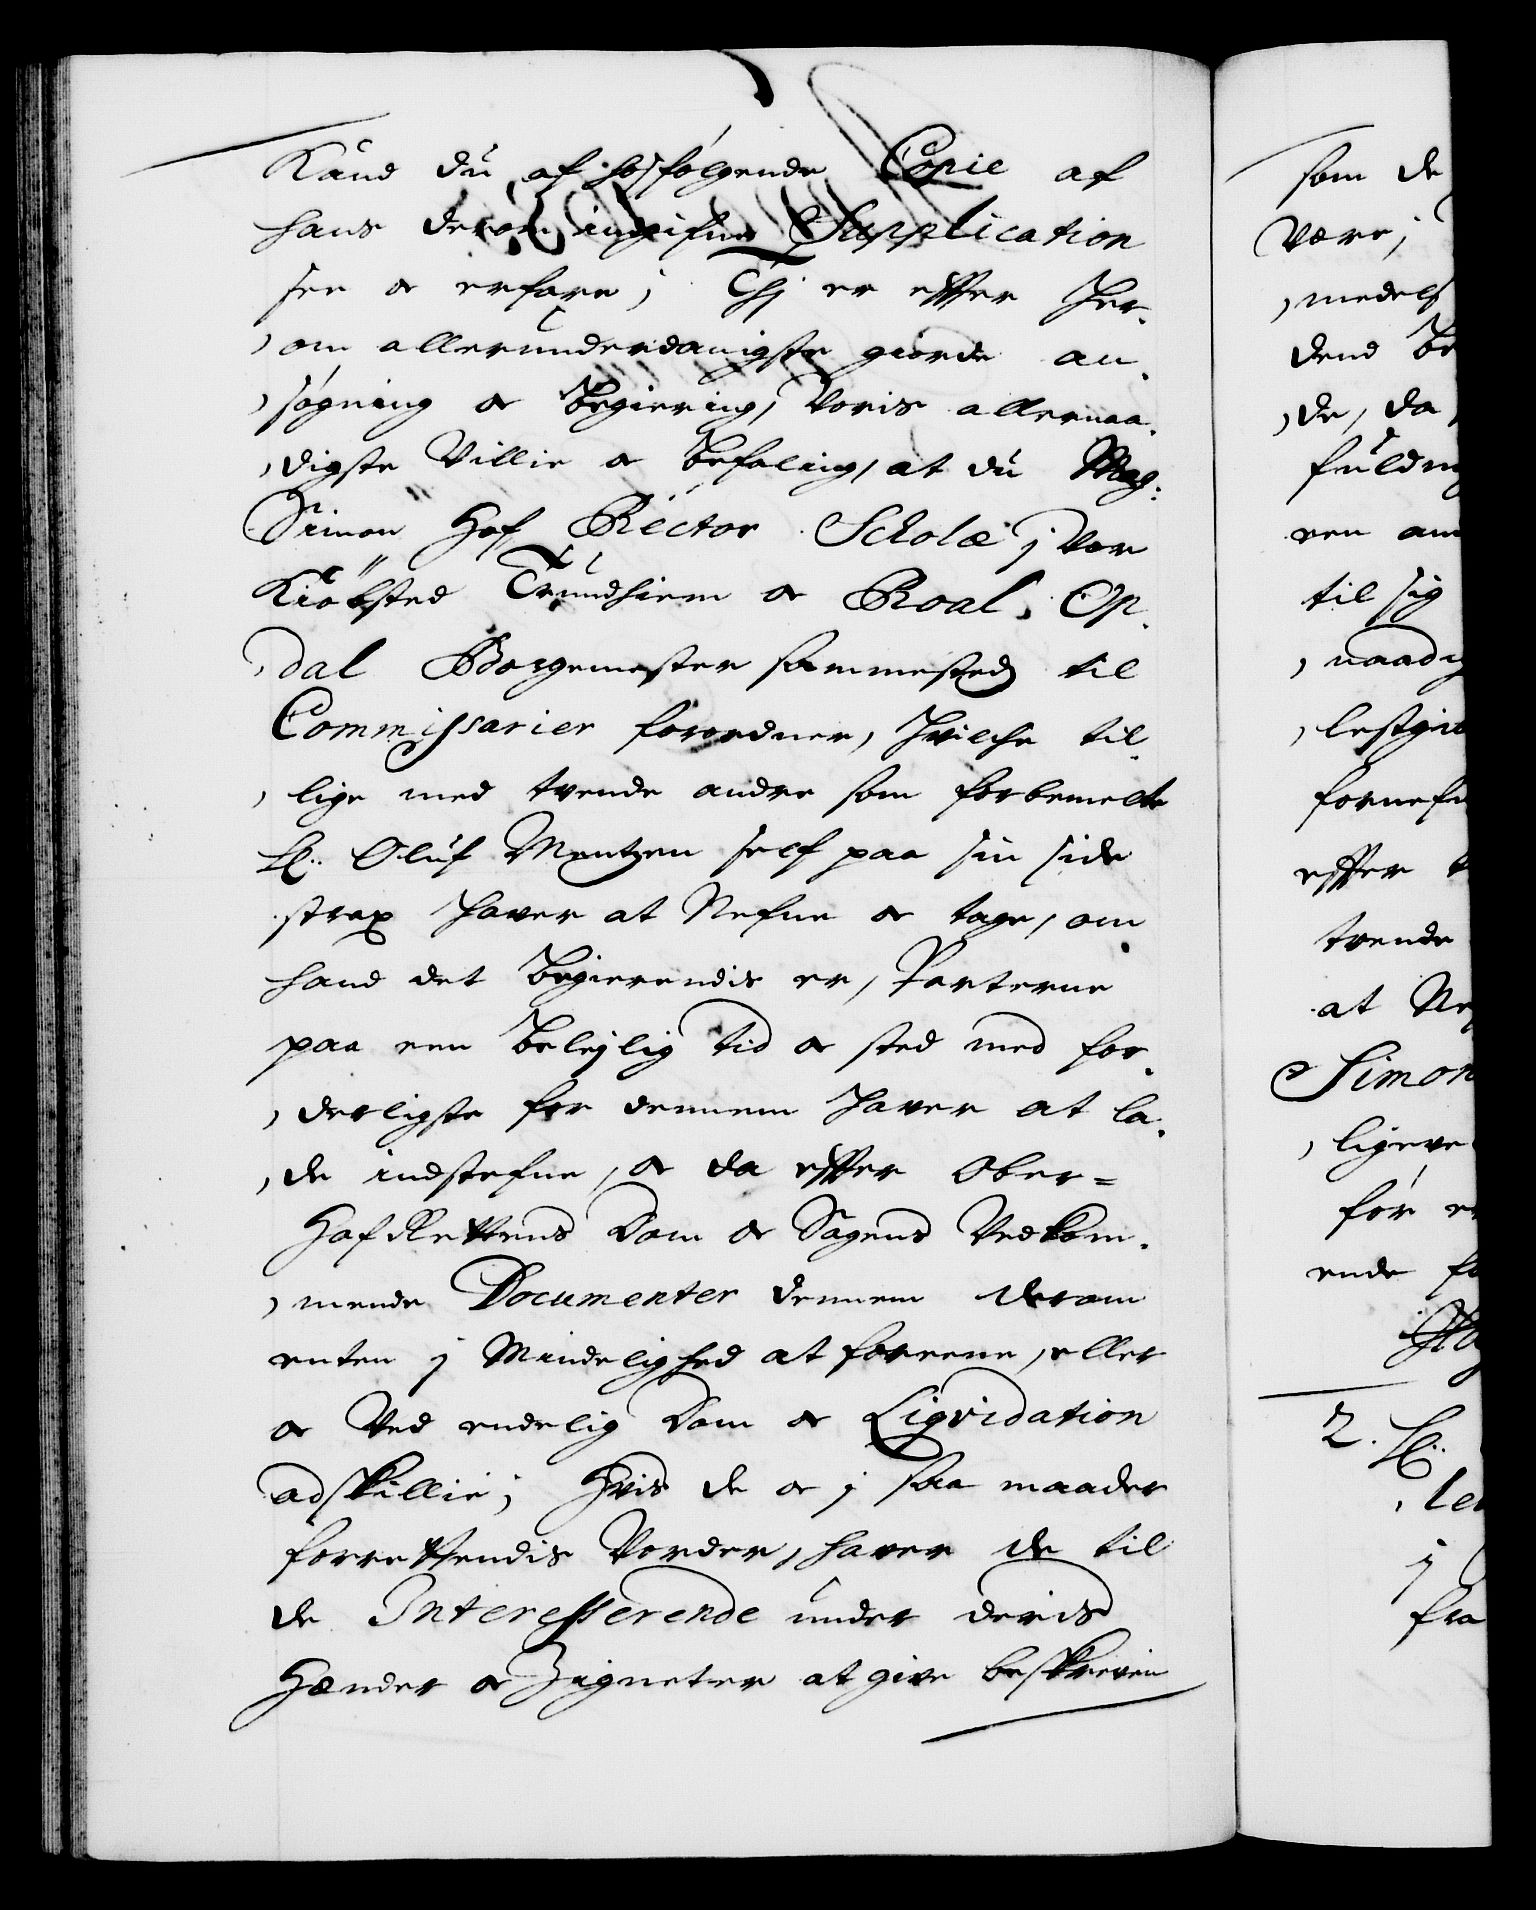 Kand du af hosfølgende Copie af
hans derom indgifne Supplication
see oc erfare; Thj er effter her-
om allerunderdanigste giorde an-
søgning oc begiering, Voris allernaa-
digste Villie oc befaling, at du Mag:
Simon Hof Rector Scholæ j vor
Kiøbsted Trundhiem oc Roal Op-
dal Borgemester sammesteds til
Commissarier forordner, hvilche til-
lige med tvende andre som forbemelte
H: Oluf Mentzen self paa sin side
strax haver at Nefne oc tage, om
hand det begierendis er, Parterne
paa een beleylig tid oc sted med for-
derligste for dennem haver at la-
de indstefne, oc da effter Ober-
HofRettens Dom oc Sagens Vedkom-
mende Documenter dennem derom
enten j Mindelighed at foreene, eller
oc Ved endelig Dom oc Liqvidation
adskillie; Hvis de oc j saa maader
forrettendis Vorder, haver de til
de Interesserende under deris
Hænder oc Zigneter at give beskreven
som de
være;
medels
dend be
de, da
fuldm
ren am
til sig
naadig
lestgiv
fornefn
effter
tvende
at Ne
Simon
ligeve
før e
ende fo
2. H:
j
fra